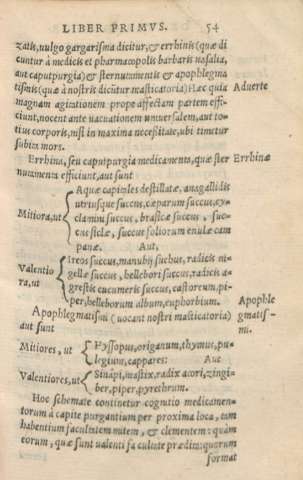 LIBER PRIMVS. 54
zatis, uulgo gargarisma dicitur, & errhinis (quæ di
cuntur à medicis et pharmacopolis barbaris nasalia,
aut caputpurgia) & sternutamentis & apophlegma
tismis (quæ à nostris dicũtur masticatoria) Hæc quia Aduerte
magnam agitationem prope affectam partem effi-
ciunt, nocent ante uacuationem uniuersalem, aut to-
tius corporis, nisi in maxima necessitate, ubi timetur
subita mors.
Errhina, seu caputpurgia medicamenta, quæ ster Errhinæ
nutamenta efficiunt, aut sunt
Mitiora, ut
Aquæ destillatæ, anagallidis
utriusque succus, cæparum succus, cy-
claminis succus, brasicæ succus, suc-
cus foliorum enulæ cam
panæ. Aut,
Valentio
ra, ut
Ireos succus, radicis ni-
gellæ succus, hellebori succus, radicis a-
grestis cucumeris succus, castoreum, pi-
per, helleborum album, euphorbium. Apophle
Apophlegmatismi (uocant nostri masticatoria) gmatis-
aut sunt mi.
Mitiores, ut
Hyssopus, origanum, thymus, pu-
legium, cappares: Aut
Valentiores, ut
Sinapi, mastix, radix acori, zingi-
ber, piper, pyrethrum.
Hoc schemate continetur cognitio medicamen-
torum à capite purgantium per proxima loca, tum
habentium facultatem mitem, & clementem: quàm
eorum, quæ sunt ualenti facultate prædita: quorum
format